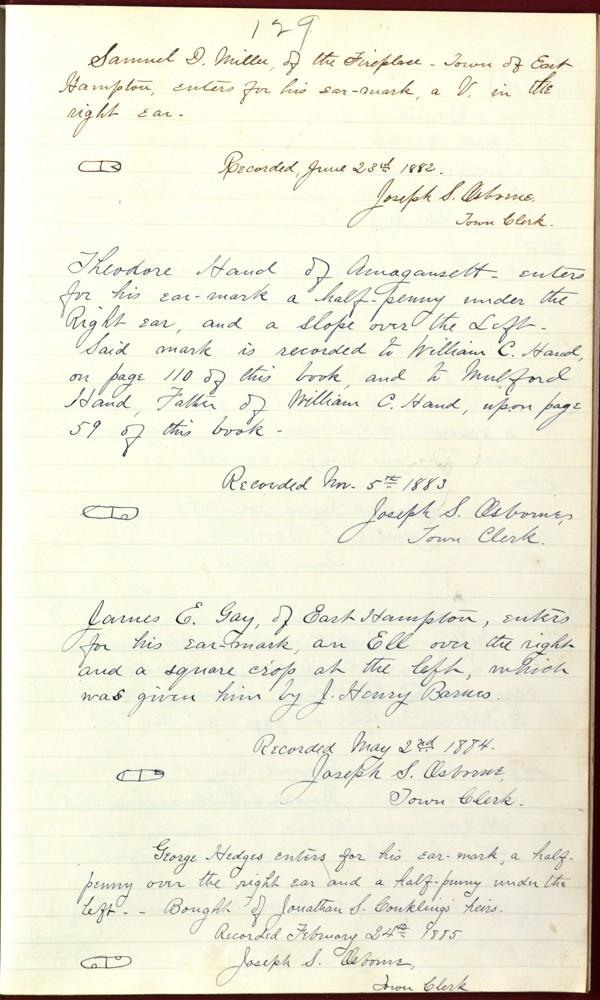 129
Samuel D. Miller, of the Fireplace - Town of East
Hampton, enters for his ear-mark, a V. in the
right ear.
Recorded, June 23d 1882.
Joseph S. Osborne,
Town Clerk.
Theodore Hand of Amagansett - enters
for his ear-mark a half-penny under the
Right ear, and a slope over the Left -
Said mark is recorded to William C. Hand,
on page 110 of this book, and to Mulford
Hand, Father of William C. Hand, upon page
59 of this book -
Recorded Nov. 5th 1883
Joseph S. Osborne,
Town Clerk.
James E. Gay, of East Hampton, enters
for his ear-mark, an Ell over the right
and a square crop at the left, which
was given him by J. Henry Barnes.
Recorded May 2nd 1884.
Joseph S. Osborne,
Town Clerk.
George Hedges enters for his ear-mark, a half-
penny over the right ear and a half-penny under the
left. - Bought of Jonathan S. Conklings heirs.
Recorded February 24th 1885
Joseph S. Osborne,
Town Clerk